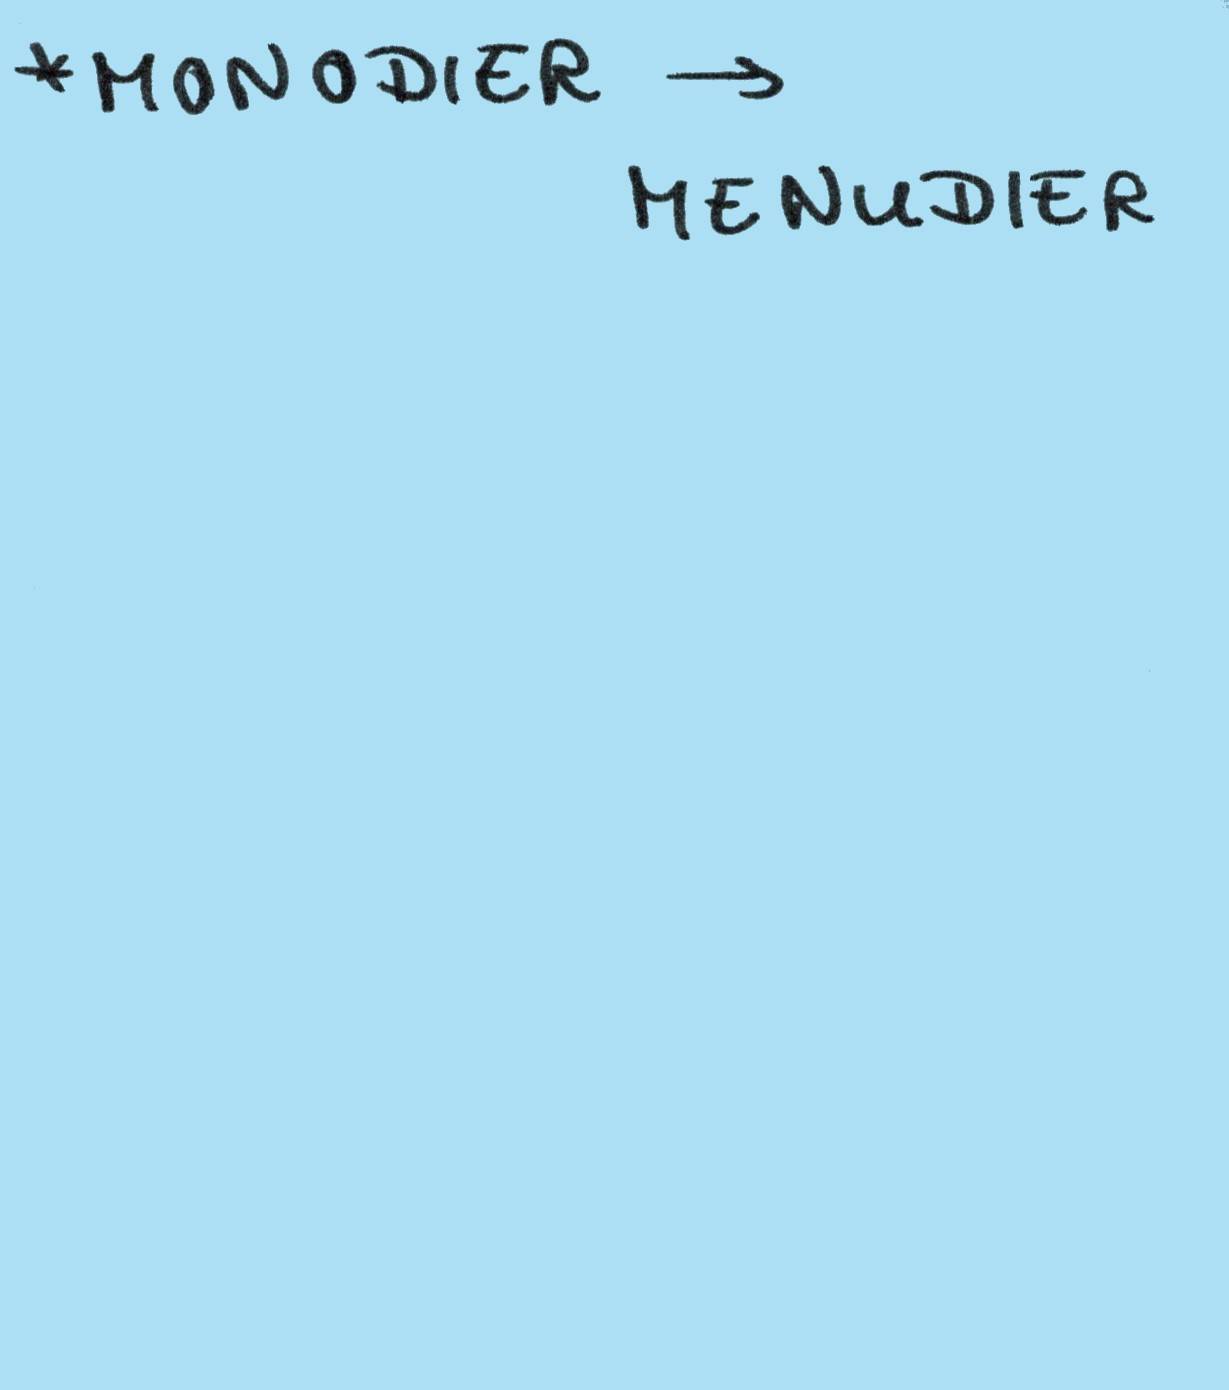 *MONODIER →
MENUDIER